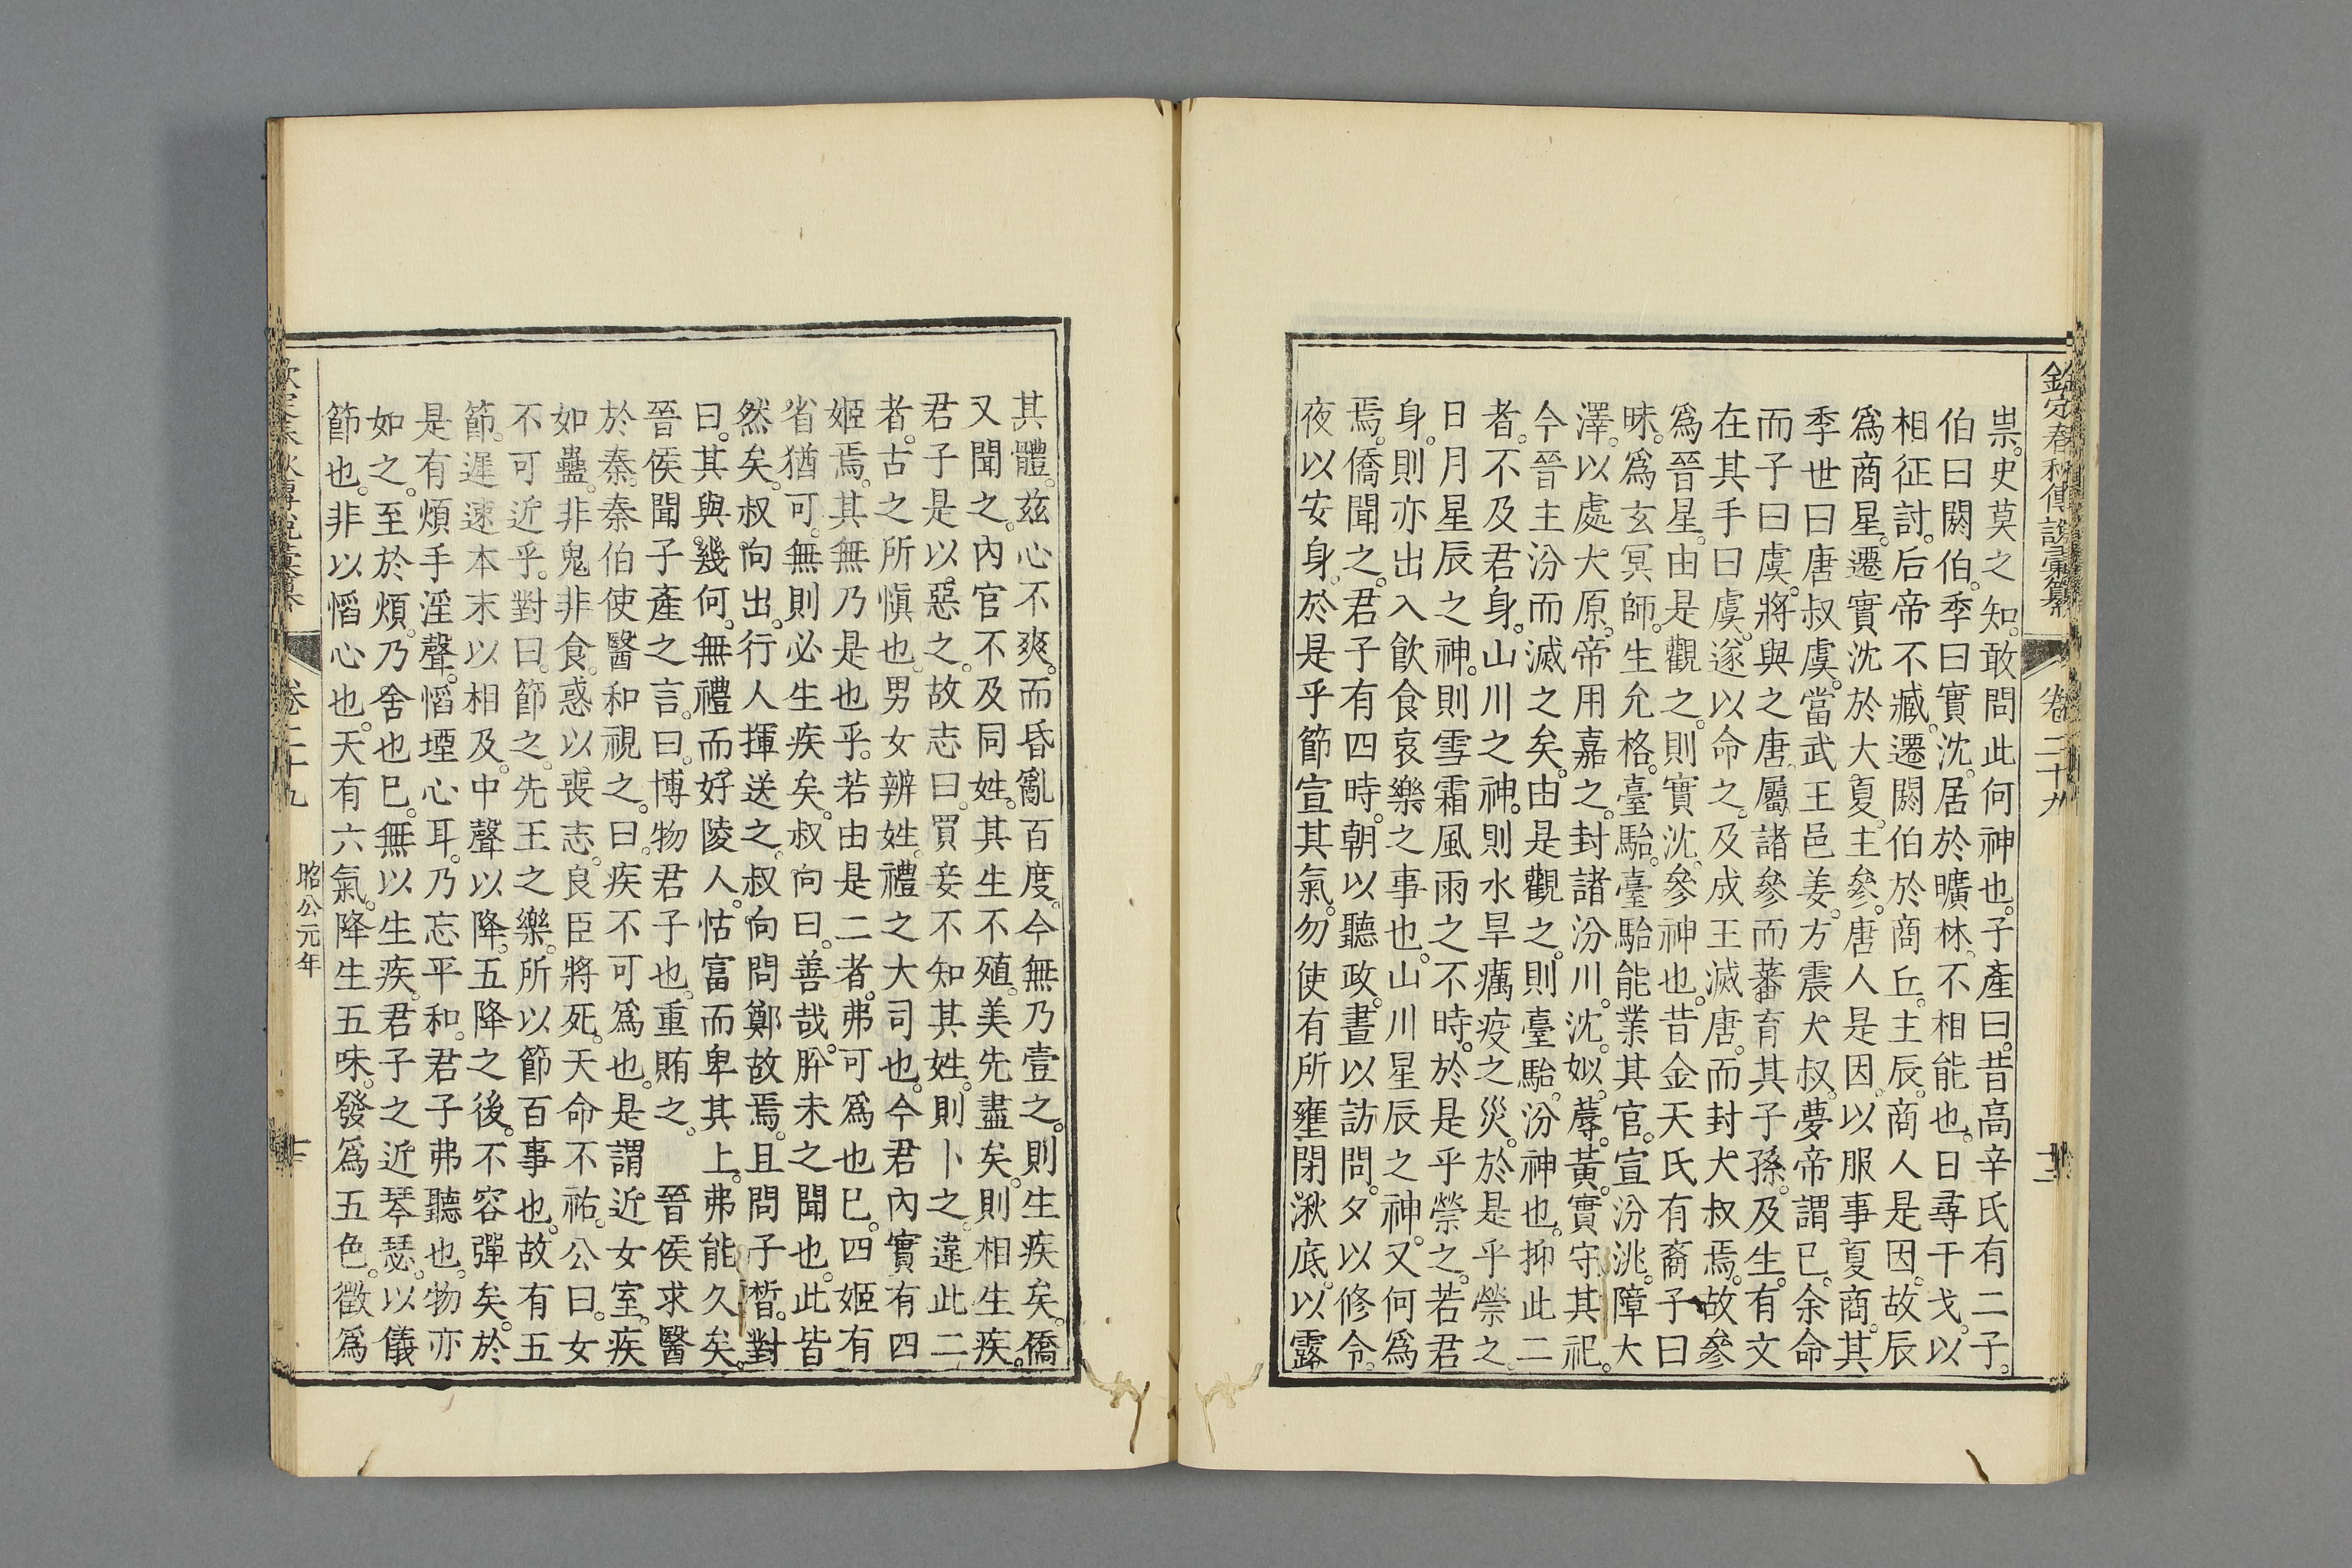 欽定春秋傳說彙纂 卷二十九
祟。史莫之知。敢問此何神也。子產曰。昔高辛氏有二子。
伯曰閼伯。季曰實沈。居於曠林。不相能也。日尋干戈。以
相征討。后帝不臧。遷閼伯於商丘。主辰。商人是因。故辰
爲商星。遷實沈於大夏。主參。唐人是因。以服事夏商。其
季世曰唐叔虞。當武王邑姜。方震大叔。夢帝謂已。余命
而子曰虞。將與之唐。屬諸參而蕃育其子孫。及生。有文
在其手曰虞。遂以命之。及成王滅唐。而封大叔焉。故參
爲晉星。由是觀之。則實沈。參神也。昔金天氏有裔子曰
昧。爲玄冥師。生允格。臺駘。臺駘能業其官。宣汾洮。障大
澤。以處大原。帝用嘉之。封諸汾川。沈。姒。蓐。黃。實守其祀。
今晉主汾而滅之矣。由是觀之。則臺駘。汾神也。抑此二
者。不及君身。山川之神。則水旱癘疫之災。於是乎禜之。
日月星辰之神。則雪霜風雨之不時。於是乎禜之。若君
身。則亦出入飲食哀樂之事也。山川星辰之神。又何爲
焉。僑聞之。君子有四時。朝以聽政。晝以訪問。夕以修令。
夜以安身。於是乎節宣其氣。勿使有所壅閉湫底。以露
其體。茲心不爽。而昏亂百度。今無乃壹之。則生疾矣。僑
又聞之。內官不及同姓。其生不殖。美先盡矣。則相生疾。
君子是以惡之。故志曰。買妾不知其姓。則卜之。違此二
者。古之所愼也。男女辨姓。禮之大司也。今君內實有四
姬焉。其無乃是也乎。若由是二者。弗可爲也已。四姬有
省猶可。無則必生疾矣。叔向曰。善哉。肸未之聞也。此皆
然矣。叔向出。行人揮送之。叔向問鄭故焉。且問子晳。對
曰。其與幾何。無禮而好陵人。怙富而卑其上。弗能久矣。
晉侯聞子產之言。曰。博物君子也。重賄之。 晉侯求醫
於秦。秦伯使醫和視之。曰。疾不可爲也。是謂近女室。疾
如蠱。非鬼非食。惑以喪志。良臣將死。天命不祐。公曰。女
不可近乎。對曰。節之。先王之樂。所以節百事也。故有五
節。遲速本末以相及。中聲以降。五降之後。不容彈矣。於
是有煩手淫聲。慆堙心耳。乃忘平和。君子弗聽也。物亦
如之。至於煩。乃舍也已。無以生疾。君子之近琴瑟。以儀
節也。非以慆心也。天有六氣。降生五味。發爲五色。徵爲
卷二十九 昭公元年